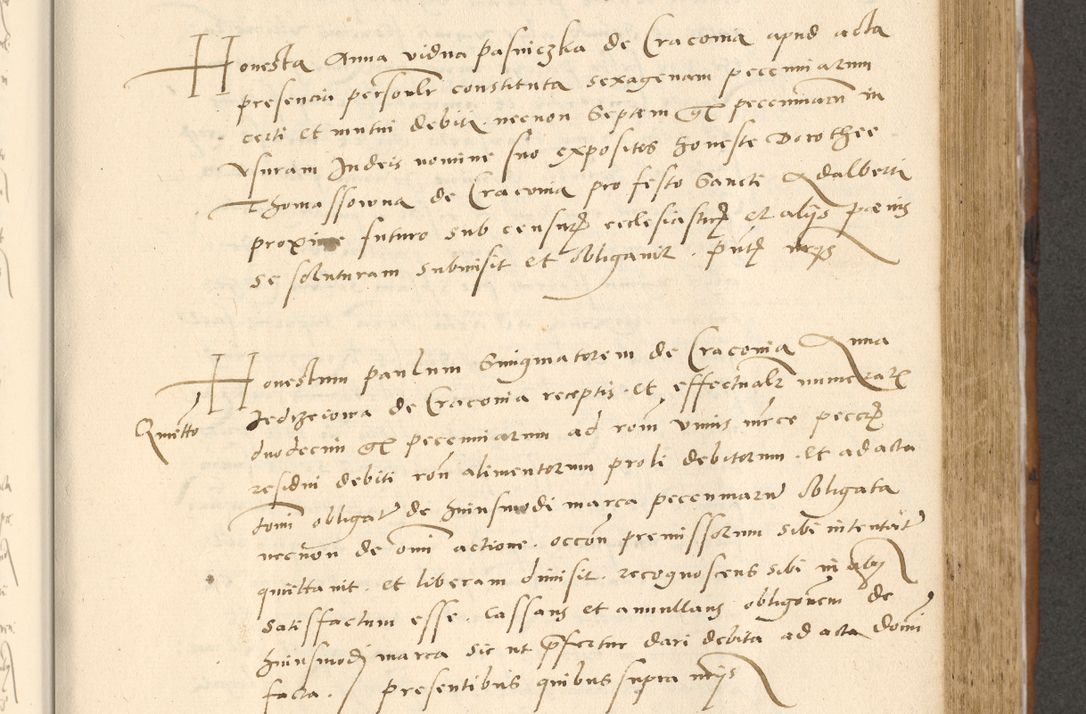 Honesta Anna vidua pasniczka de Cracovia apud acta
presencia personlr constituta sexagenam pecuniarum
certi et mutui debiti necnon Septem gr pecuniarum in
usuram Indeis nomine suo expositos honeste Dorothee
Thomassowna de Cracovia pro festo Sancti Adalberti
proxime futuro sub censuris ecclesiasticis et alijs penis
se soluturam submisit et obligavit. pntibus
Honestum paulum Smigmatorem de Cracovia Anna
Quietto Jedrzeiowa de Cracovia receptis et effectualr numeratis
duodecim gr pecuniarum ad rom unius mrce peccr
residui debiti ron alimentorum proli debitorum et ad acta
domi obligat de huiusmodi marca pecuniarum obligata
necnon de omi actione occon premissorum sibi intentat
quittavit et liberam dimisit recognoscens sibi in
satisfactum esse. Cassans et annullans obligonem de
huiusmodi marca sic ut prefertur dari debita ad acta domi
facta. presentibus quibus supra